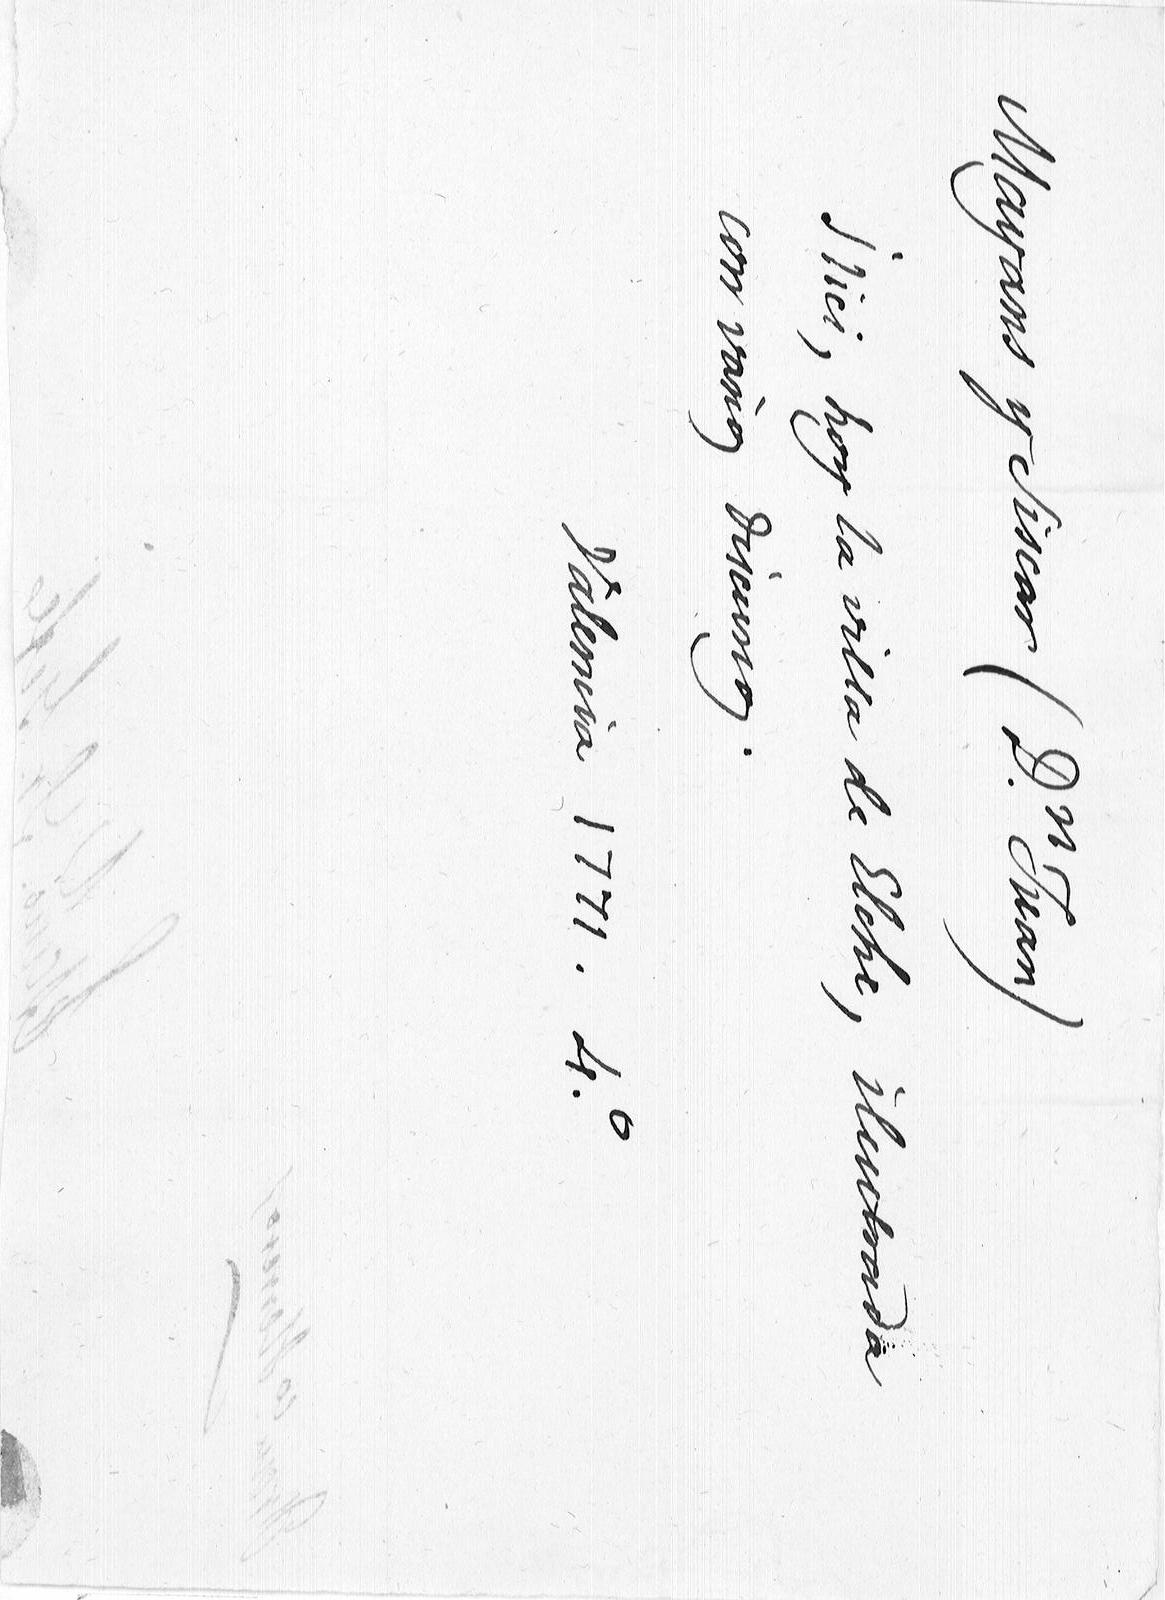 Mayans y Siscar (D.n Juan)
Ilici, hoy la villa de Elche, ilustrada
con varios Discursos.
Valencia 1771. 4.o